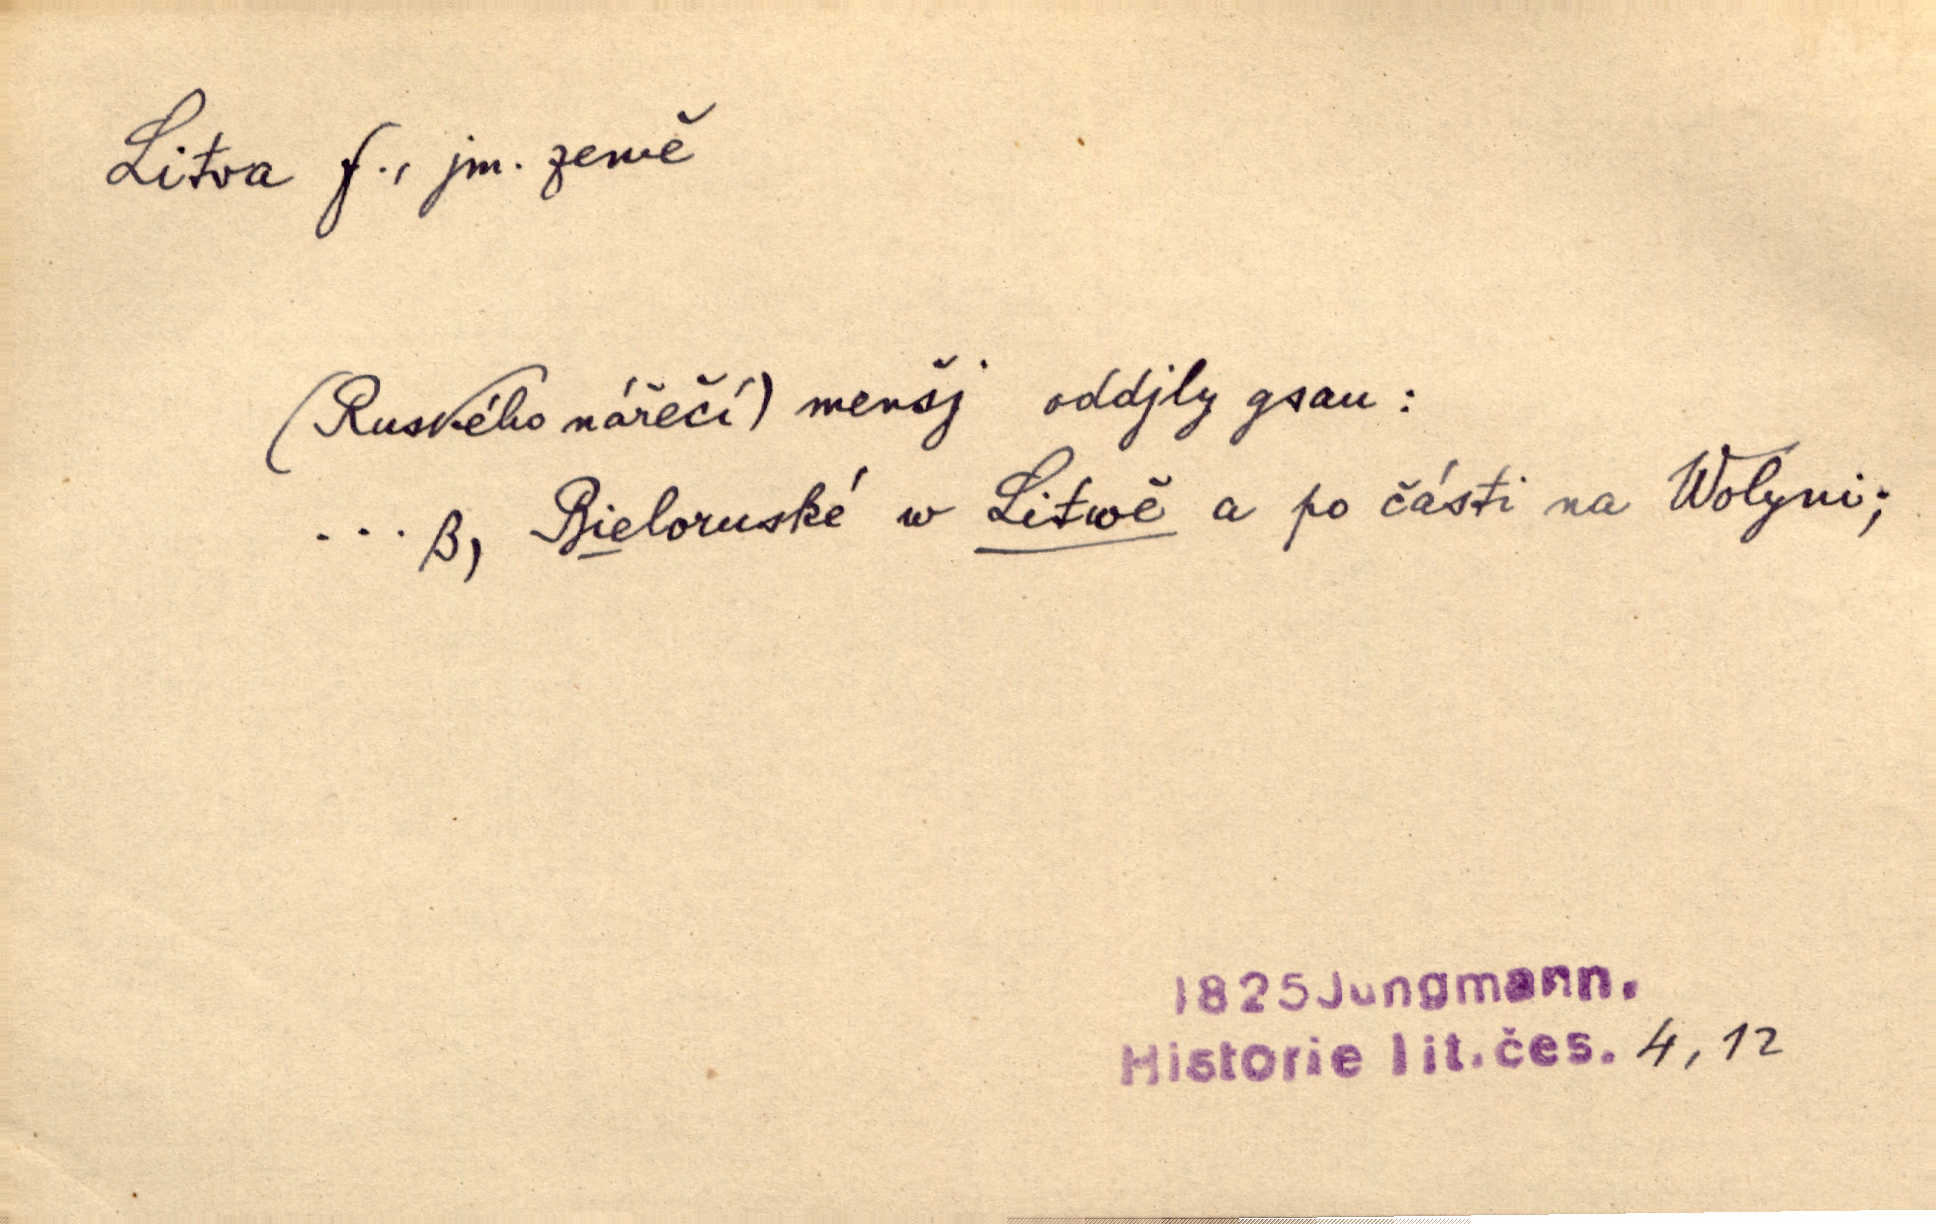 Litva f., jm. země
(Ruského nářečí) menšj oddjly gsau:
... β, Bieloruské w Litwě a po části na Wolyni;
1825 Jungmann.
Historie lit. čes. 4, 12